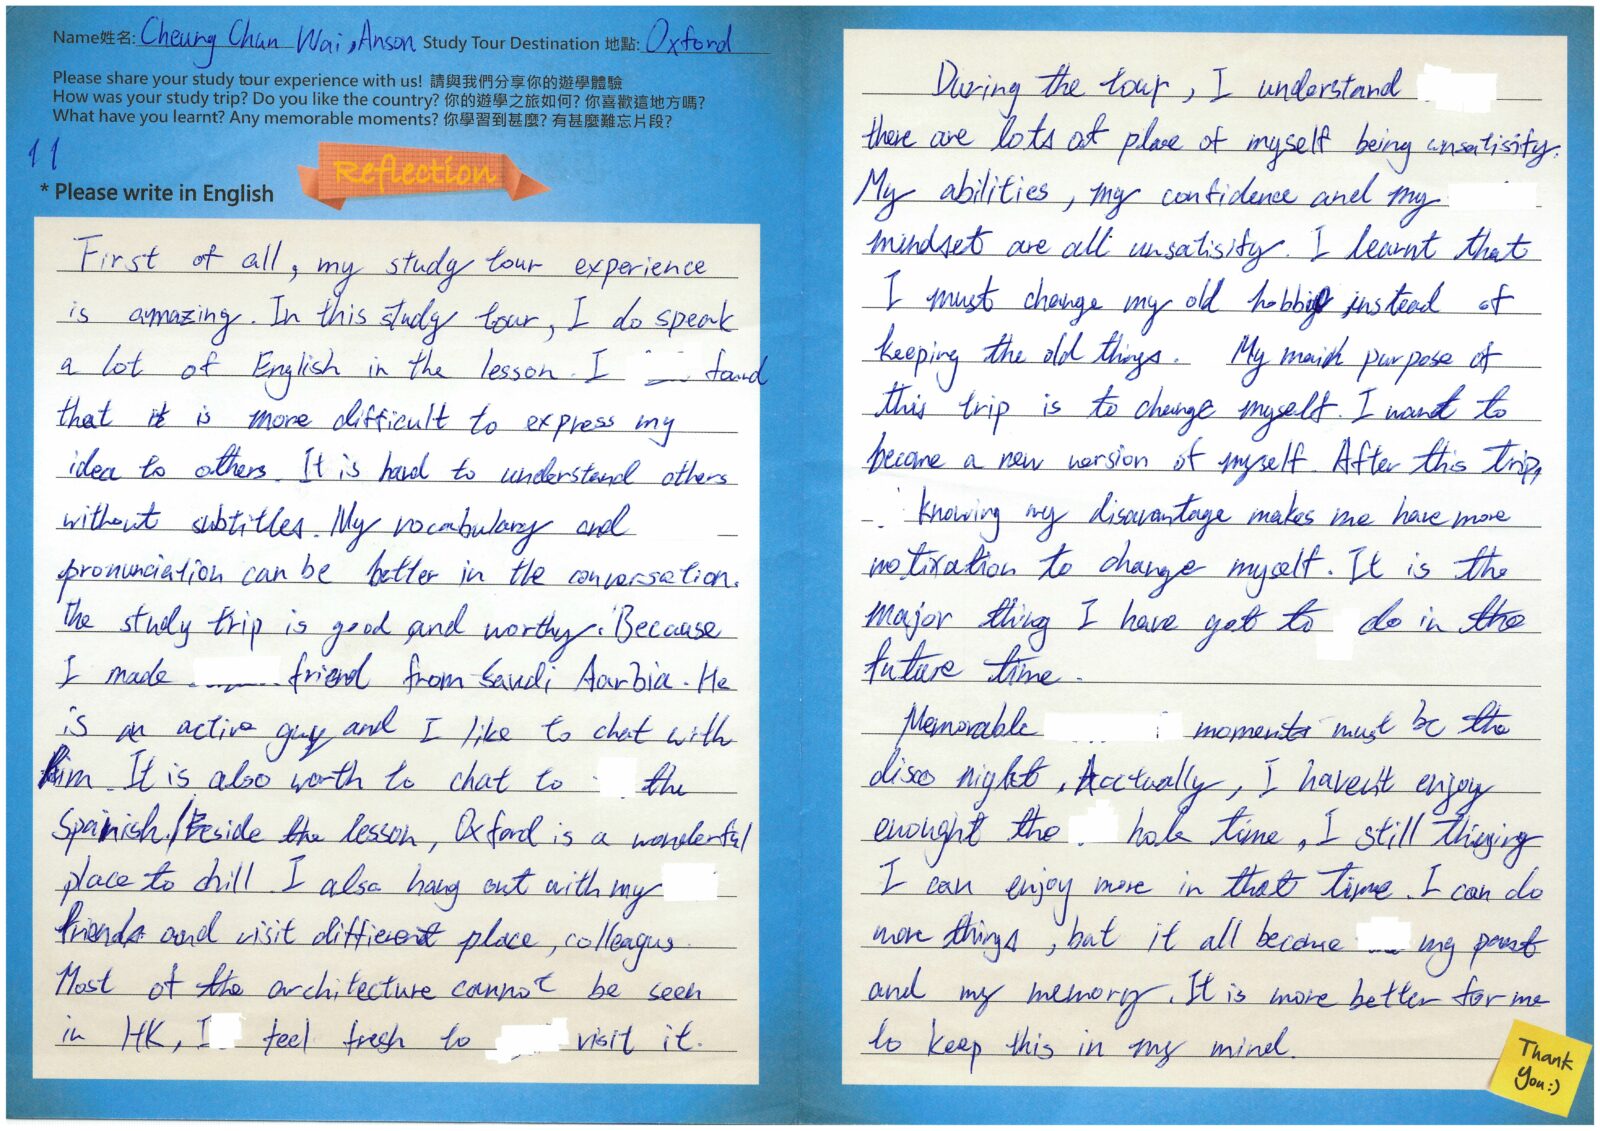 Name姓名: Cheung Chun Wai, Anson Study Tour Destination 地點: Oxford
Please share your study tour experience with us! 請與我們分享你的遊學體驗
How was your study trip? Do you like the country? 你的遊學之旅如何? 你喜歡這地方嗎?
What have you learnt? Any memorable moments? 你學習到甚麼? 有甚麼難忘片段?
11
Reflection
* Please write in English
First of all, my study tour experience
is amazing. In this study tour, I do speak
a lot of English in the lesson. I found
that it is more difficult to express my
idea to others. It is hard to understand others
without subtitles. My vocabulary and
pronunciation can be better in the conversation.
The study trip is good and worthy. Because
I made friend from Saudi Aarbia. He
is an active guy and I like to chat with
him. It is also worth to chat to the
Spainish. / Beside the lesson, Oxford is a wonderful
place to chill. I also hang out with my
friends and visit different place, colleagus.
Most of the architecture cannot be seen
in HK, I feel fresh to visit it.
During the tour, I understand
there are lots of place of myself being unsatisify.
My abilities, my confidence and my
mindset are all unsatisify. I learnt that
I must change my old instead of
keeping the old things. My main purpose of
this trip is to change myself. I want to
become a new version of myself. After this trip,
knowing my disavantage makes me have more
motixation to change myself. It is the
major thing I have got to do in the
future time.
Memorable moments must be the
disco night, Acctually, I haven't enjoy
enought the hole time, I still
I can enjoy more in that time. I can do
more things, but it all become my past
and my memory. It is more better for me
to keep this in my mind.
Thank
You:)